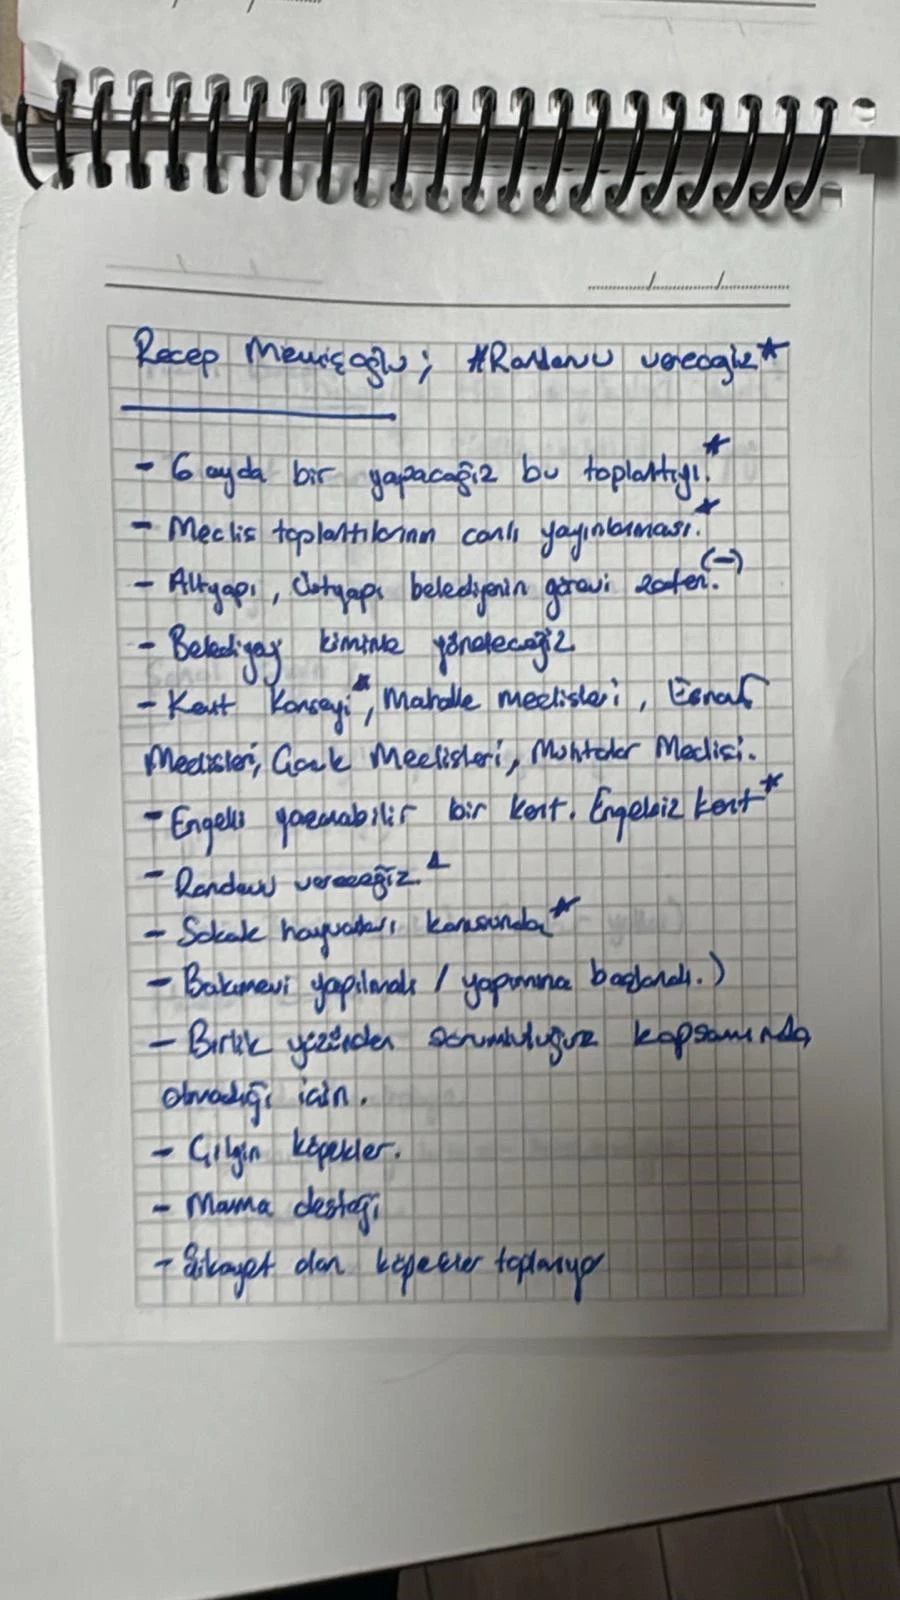 Recep Memişoğlu; #Randevu vereceğiz*
- 6 ayda bir yapacağız bu toplantıyı.*
- Meclis toplantılarının canlı yayınlanması.*
- Altyapı, Üstyapı belediyenin görevi zaten. (-)
- Belediyeyi kiminle yöneteceğiz
- Kent Konseyi*, Mahalle meclisleri, Esnaf
Meclisleri, Çocuk Meclisleri, Muhtarlar Meclisi.
- Engelli yaşanabilir bir kent. Engelsiz kent*
- Randevu vereceğiz.
- Sokak hayvanları konusunda*
- Bakımevi yapılmalı / yapımına başlandı.)
- Birlik yüzünden sorumluluğunuz kapsamında
olmadığı için.
- Çılgın köpekler.
- Mama desteği
- Şikayet olan köpekler toplanıyor